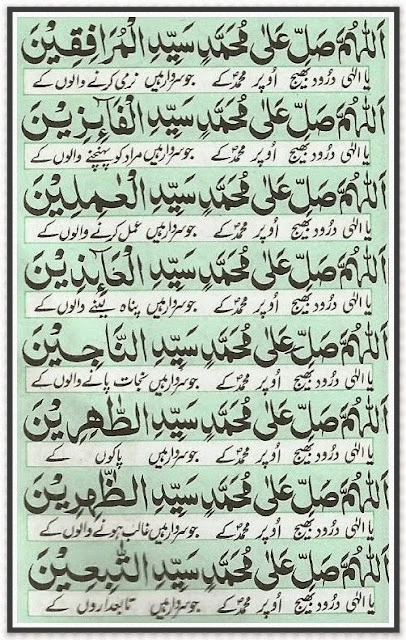 اَللّٰهُمَّ صَلِّ عَلٰی مُحَمَّدٍ سَیِّدِ الْمُرَافِقِیْنَ
یا الٰہی درود بھیج اُوپر محمدؐ کے جو سردار ہیں نرمی کرنے والوں کے
اَللّٰهُمَّ صَلِّ عَلٰی مُحَمَّدٍ سَیِّدِ الْفَآئِزِیْنَ
یا الٰہی درود بھیج اُوپر محمدؐ کے جو سردار ہیں مراد کو پہنچنے والوں کے
اَللّٰهُمَّ صَلِّ عَلٰی مُحَمَّدٍ سَیِّدِ الْعٰمِلِیْنَ
یا الٰہی درود بھیج اُوپر محمدؐ کے جو سردار ہیں عمل کرنے والوں کے
اَللّٰهُمَّ صَلِّ عَلٰی مُحَمَّدٍ سَیِّدِ الْعَآئِذِیْنَ
یا الٰہی درود بھیج اُوپر محمدؐ کے جو سردار ہیں پناہ لینے والوں کے
اَللّٰهُمَّ صَلِّ عَلٰی مُحَمَّدٍ سَیِّدِ النَّاجِیْنَ
یا الٰہی درود بھیج اُوپر محمدؐ کے جو سردار ہیں نجات پانے والوں کے
اَللّٰهُمَّ صَلِّ عَلٰی مُحَمَّدٍ سَیِّدِ الطّٰهِرِیْنَ
یا الٰہی درود بھیج اُوپر محمدؐ کے جو سردار ہیں پاکوں کے
اَللّٰهُمَّ صَلِّ عَلٰی مُحَمَّدٍ سَیِّدِ الظّٰهِرِیْنَ
یا الٰہی درود بھیج اُوپر محمدؐ کے جو سردار ہیں غالب ہونے والوں کے
اَللّٰهُمَّ صَلِّ عَلٰی مُحَمَّدٍ سَیِّدِ التّٰبِعِیْنَ
یا الٰہی درود بھیج اُوپر محمدؐ کے جو سردار ہیں تابعداروں کے